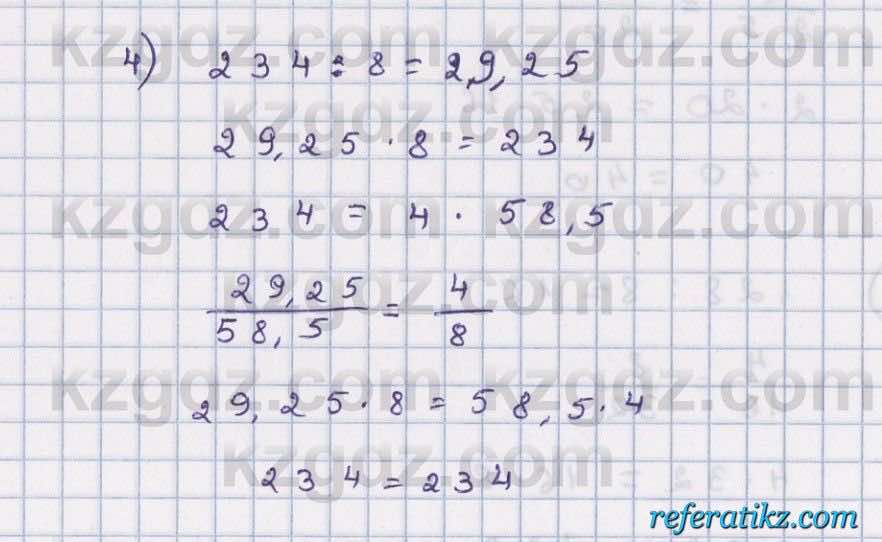 kzgdz.com kzgdz.com
4) 234 : 8 = 29,25
kzgdz.com
29,25 · 8 = 234
kzgdz.com kzgdz.com
234 = 4 · 58,5
kzgdz.com
29,25/58,5 = 4/8
kzgdz.com kzgdz.com
29,25 · 8 = 58,5 · 4
kzgdz.com
234 = 234
referatikz.com